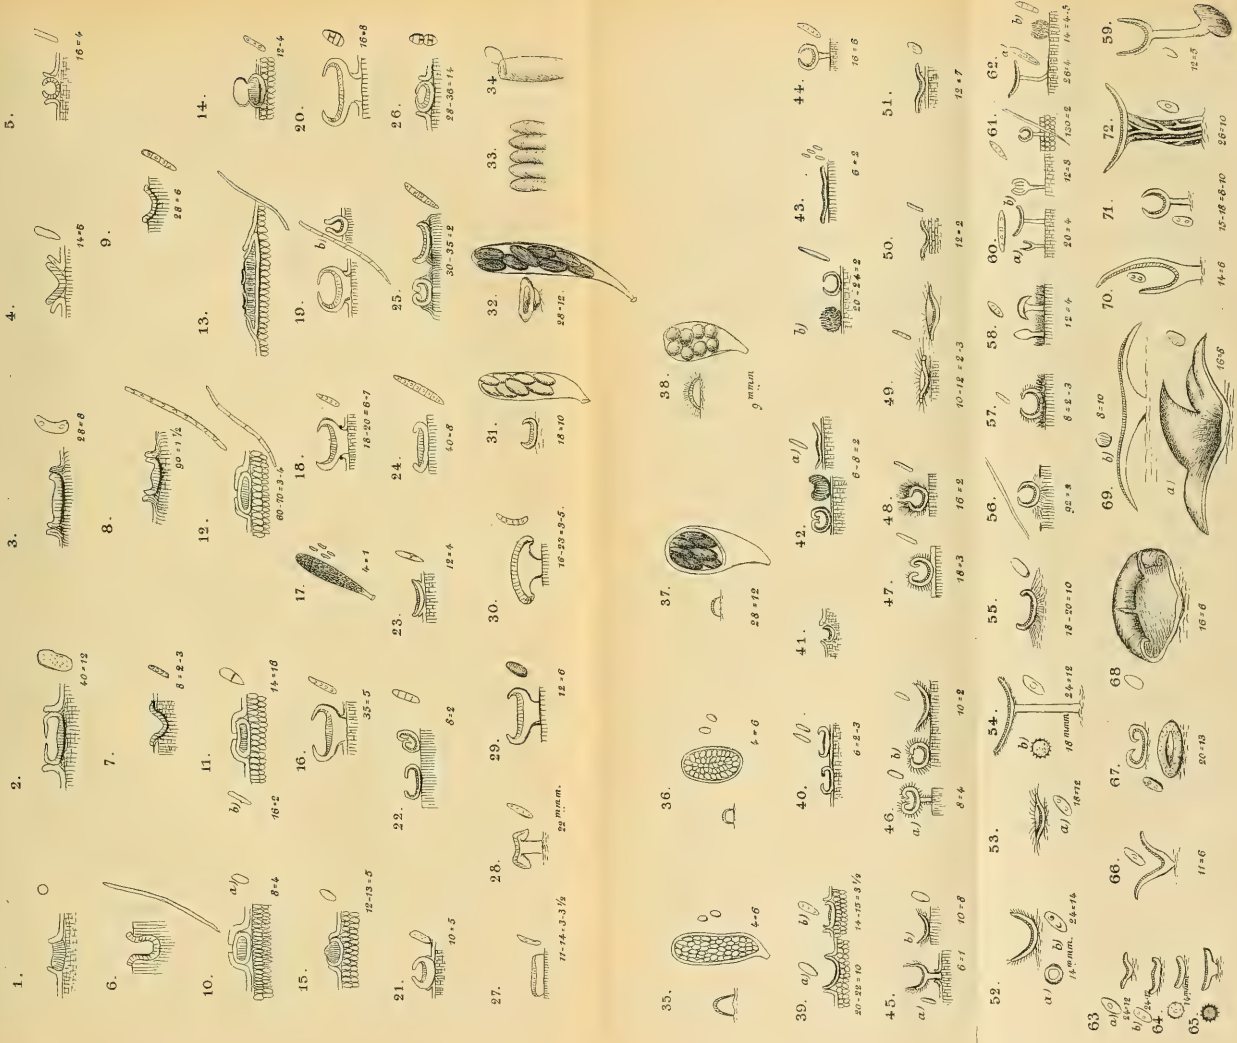 1.
2.
40 = 12
3.
28 = 8
4.
14 = 6
5.
16 = 4
6.
7.
8 = 2-3
8.
90 = 1 ½
9.
28 = 6
10.
a)
8 = 4
b)
16 = 2
11.
14 = 18
12.
60-70 = 3-4
13.
14.
12 = 4
15.
12-13 = 5
16.
35 = 5
17.
4 = 1
18.
18-20 = 6-7
19.
b
20.
16 = 8
21.
10 = 5
22.
8 = 2
23.
12 = 4
24.
40 = 8
25.
30-35 = 2
26.
28-36 = 14
27.
11-14 = 3-3 ½
28.
22 mmm.
29.
12 = 6
30.
16-23 = 3-5.
31.
18 = 10
32.
28 = 12.
33.
34
35.
4 = 6
36.
4 = 6
37.
28 = 12
38.
9 mmm
39.
a)
20-22 = 10
b)
14-15 = 3 ½
40.
6 = 2-3
41.
42.
a)
6-8 = 2
b)
20-24 = 2
43.
6 = 2
44.
16 = 6
45.
a)
6 = 1
b)
10 = 8
46.
a)
8 = 4
b)
10 = 2
47.
18 = 3
48.
16 = 2
49.
10-12 = 2-3
50.
12 = 2
51.
12 = 7
52.
a)
14 mmm.
b)
24 = 14
53.
a)
18 = 12
54.
b)
18 mmm.
24 = 12
55.
18-20 = 10
56.
57.
8 = 2-3
58.
12 = 4
60.
a)
20 = 4
b)
12 = 3
61.
130 = 2
62.
a)
26 = 4
b)
14 = 4-5
59.
12 = 5
63
a)
24 = 12
b)
64.
14 mmm
65.
66.
11 = 6
67.
20 = 13
68
16 = 6
69.
a)
16 = 8
b)
8 = 10
70.
14 = 6
71.
15-18 = 8-10
72.
26 = 10